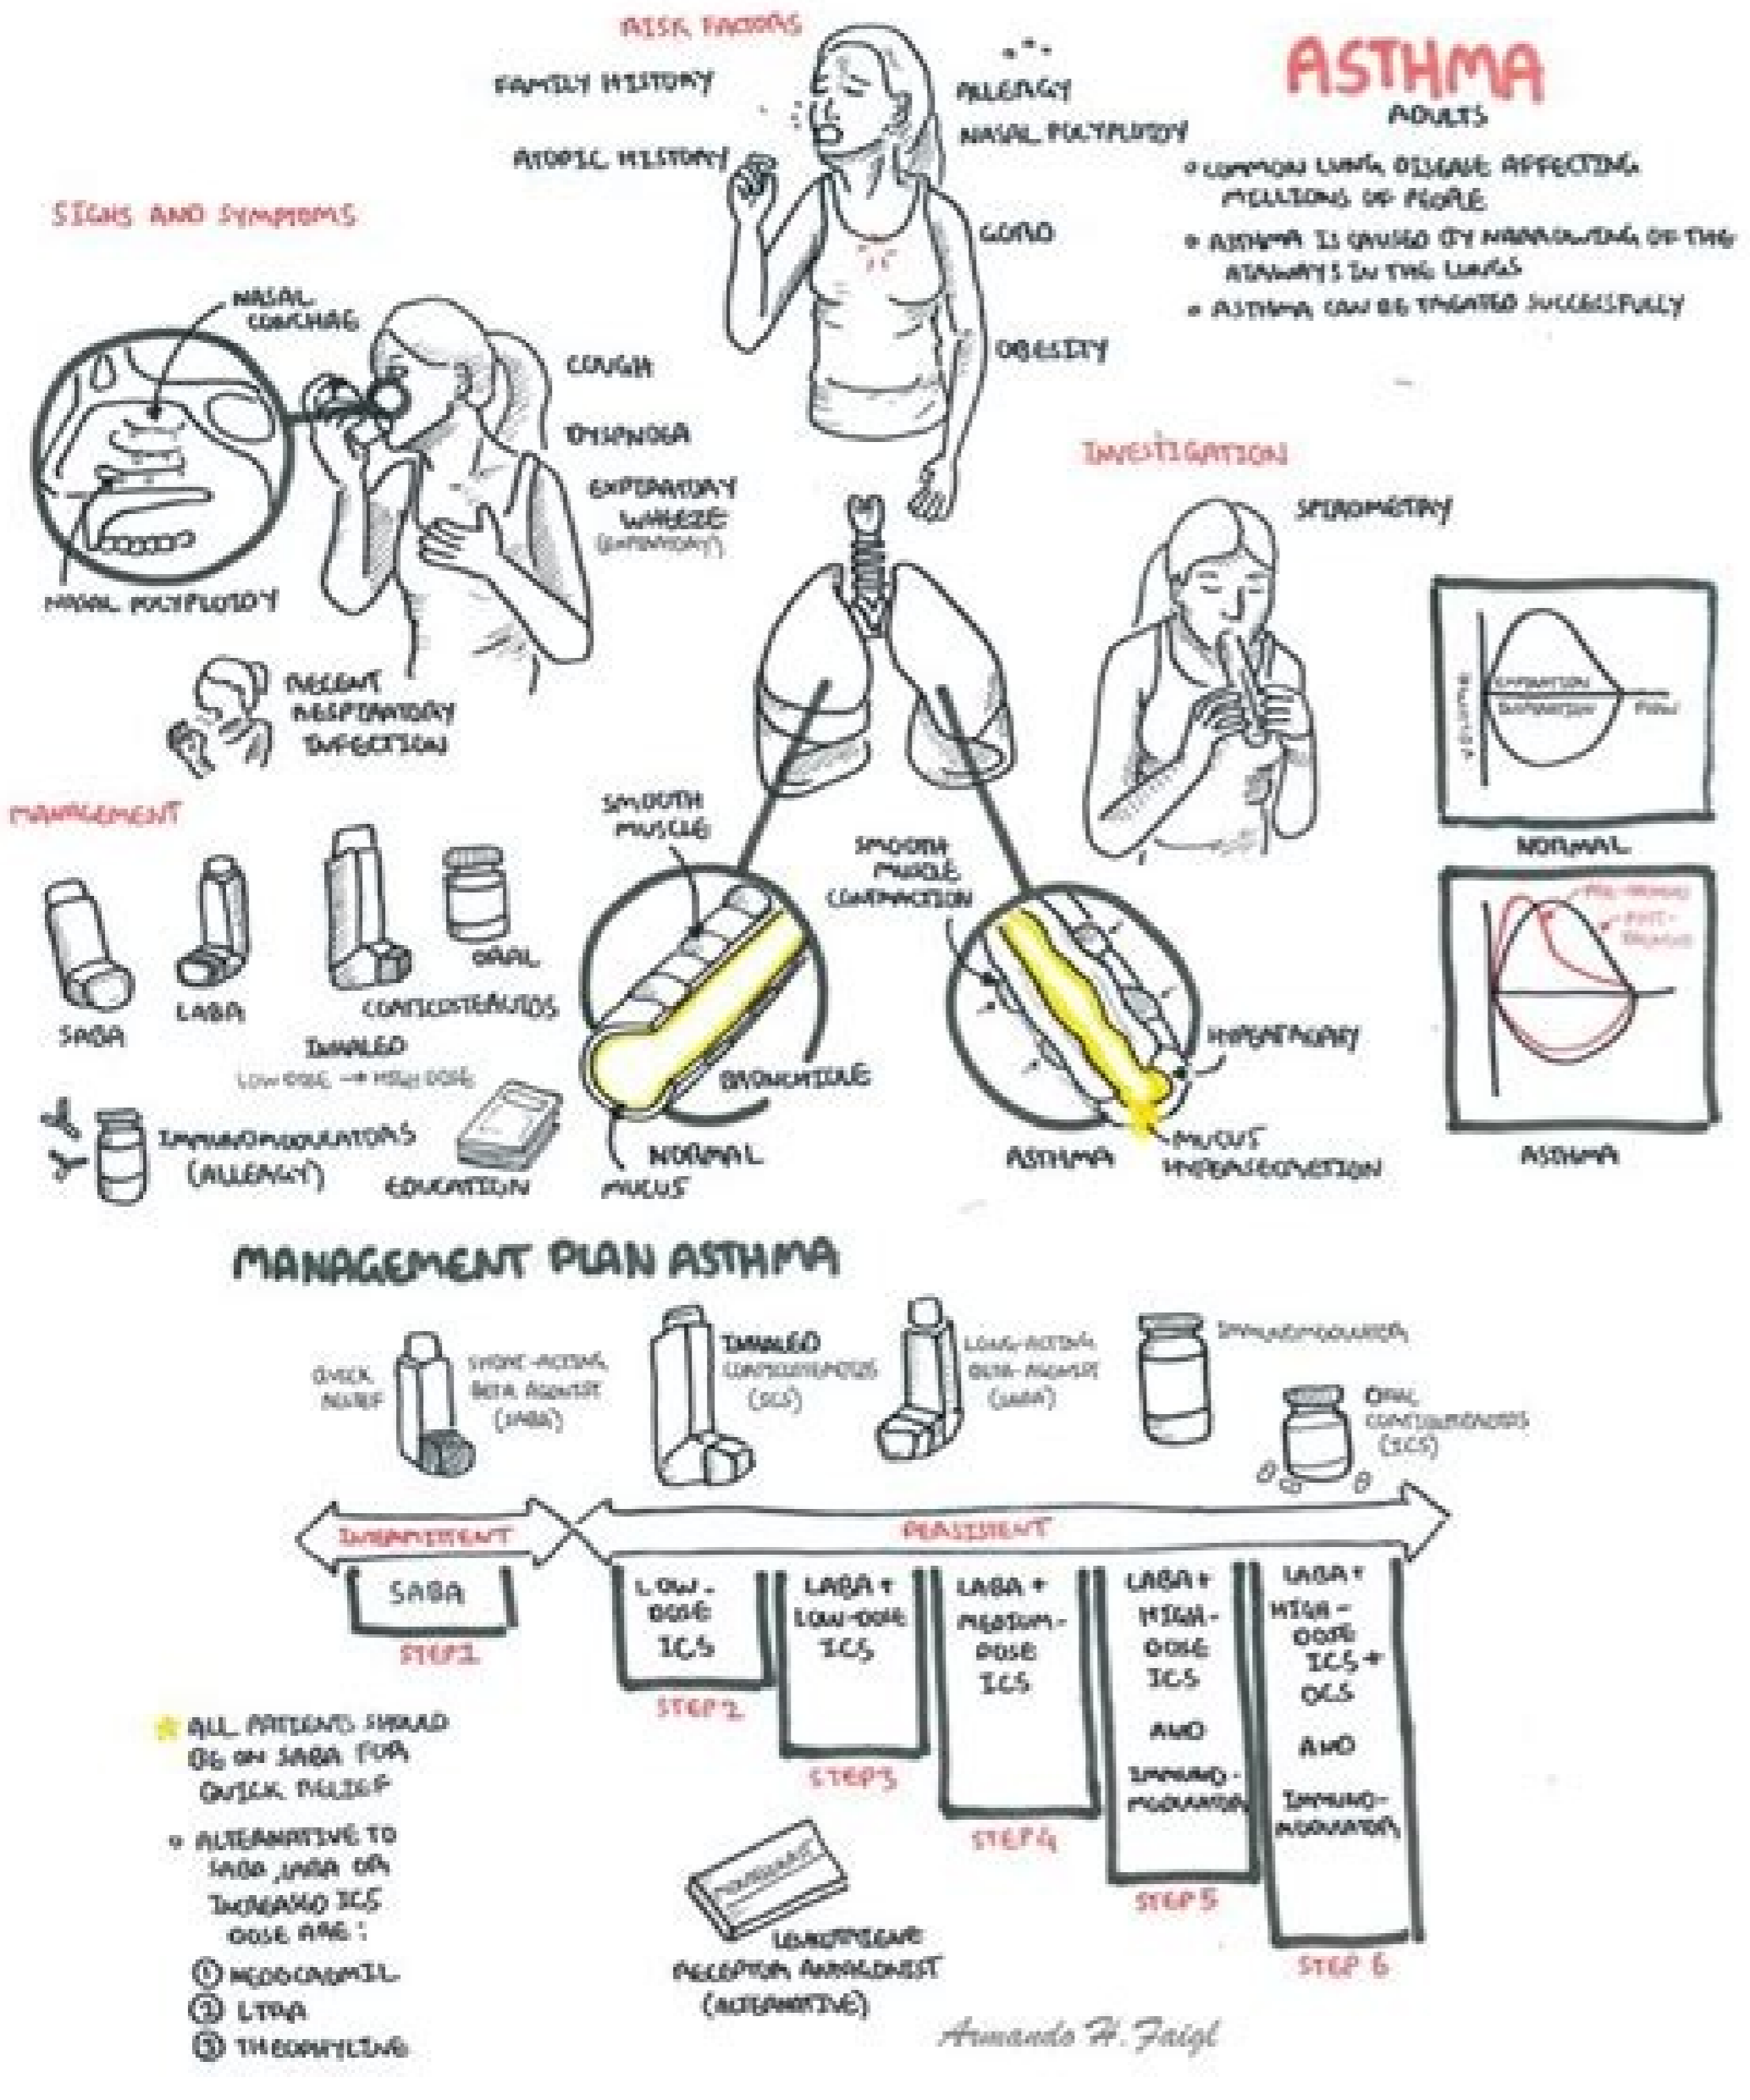 RISK FACTORS
FAMILY HISTORY
ATOPIC HISTORY
ALLERGY
NASAL POLYPLOIDY
GORD
OBESITY
ASTHMA
ADULTS
COMMON LUNG DISEASE AFFECTING
MILLIONS OF PEOPLE
ASTHMA IS CAUSED BY NARROWING OF THE
AIRWAYS IN THE LUNGS
ASTHMA CAN BE TREATED SUCCESSFULLY
SIGNS AND SYMPTOMS
NASAL
CONCHAE
COUGH
DYSPNOEA
EXPIRATORY
WHEEZE
(EXPIRATORY)
NASAL POLYPLOIDY
RECENT
RESPIRATORY
INFECTION
INVESTIGATION
SPIROMETRY
VOLUME
EXPIRATION
INSPIRATION
FLOW
NORMAL
POST-
ASTHMA
MANAGEMENT
SABA
LABA
ORAL
CORTICOSTEROIDS
INHALED
LOW DOSE → HIGH DOSE
IMMUNOMODULATORS
(ALLERGY)
EDUCATION
SMOOTH
MUSCLE
BRONCHIOLE
NORMAL
MUCUS
SMOOTH
MUSCLE
CONTRACTION
ASTHMA
MUCUS
HYPERSECRETION
MANAGEMENT PLAN ASTHMA
QUICK
RELIEF
SHORT-ACTING
BETA AGONIST
(SABA)
INHALED
CORTICOSTEROIDS
LONG-ACTING
BETA-AGONIST
IMMUNOMODULATOR
ORAL
CORTICOSTEROIDS
(ICS)
PERSISTENT
SABA
STEP 1
LOW-
DOSE
ICS
STEP 2
LABA +
LOW-DOSE
ICS
STEP 3
LABA +
MEDIUM-
DOSE
ICS
STEP 4
LABA +
HIGH-
DOSE
ICS
AND
IMMUNO-
MODULATOR
STEP 5
LABA +
HIGH-
DOSE
ICS +
OCS
AND
IMMUNO-
MODULATOR
STEP 6
ALL PATIENTS SHOULD
BE ON SABA FOR
QUICK RELIEF
ALTERNATIVE TO
SABA, LABA OR
INCREASED ICS
DOSE ARE:
① NEDOCROMIL
② LTRA
③ THEOPHYLINE
LEUKOTRIENE
RECEPTOR ANTAGONIST
(ALTERNATIVE)
Armando H. Faigl